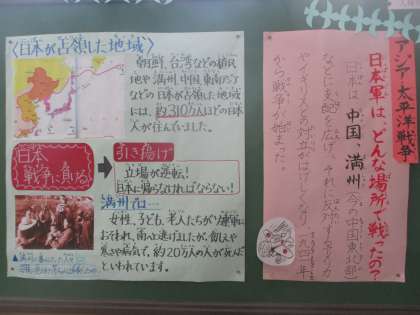 アジア太平洋戦争
日本軍は、どんな場所で戦ったの？
日本は、中国、満州(今の中国東北部)
などに支配を広げ、それに反対するアメリカ
やイギリスとの対立がはげしくなり、一九四一年
から戦争が始まった。
〈日本が占領した地域〉
朝鮮、台湾などの植民
地や満州、中国、東南アジア
などの日本が占領した地域
には、約310万人ほどの日本
人が住んでいました。
日本
戦争に負ける
引き揚げ
立場が逆転！
日本に帰らなければならない！
満州では…
女性、子ども、老人たちがソ連軍に
おそわれ、南へと逃げましたが、飢えや
寒さや病気で、約20万人の人が死んだ
といわれています。